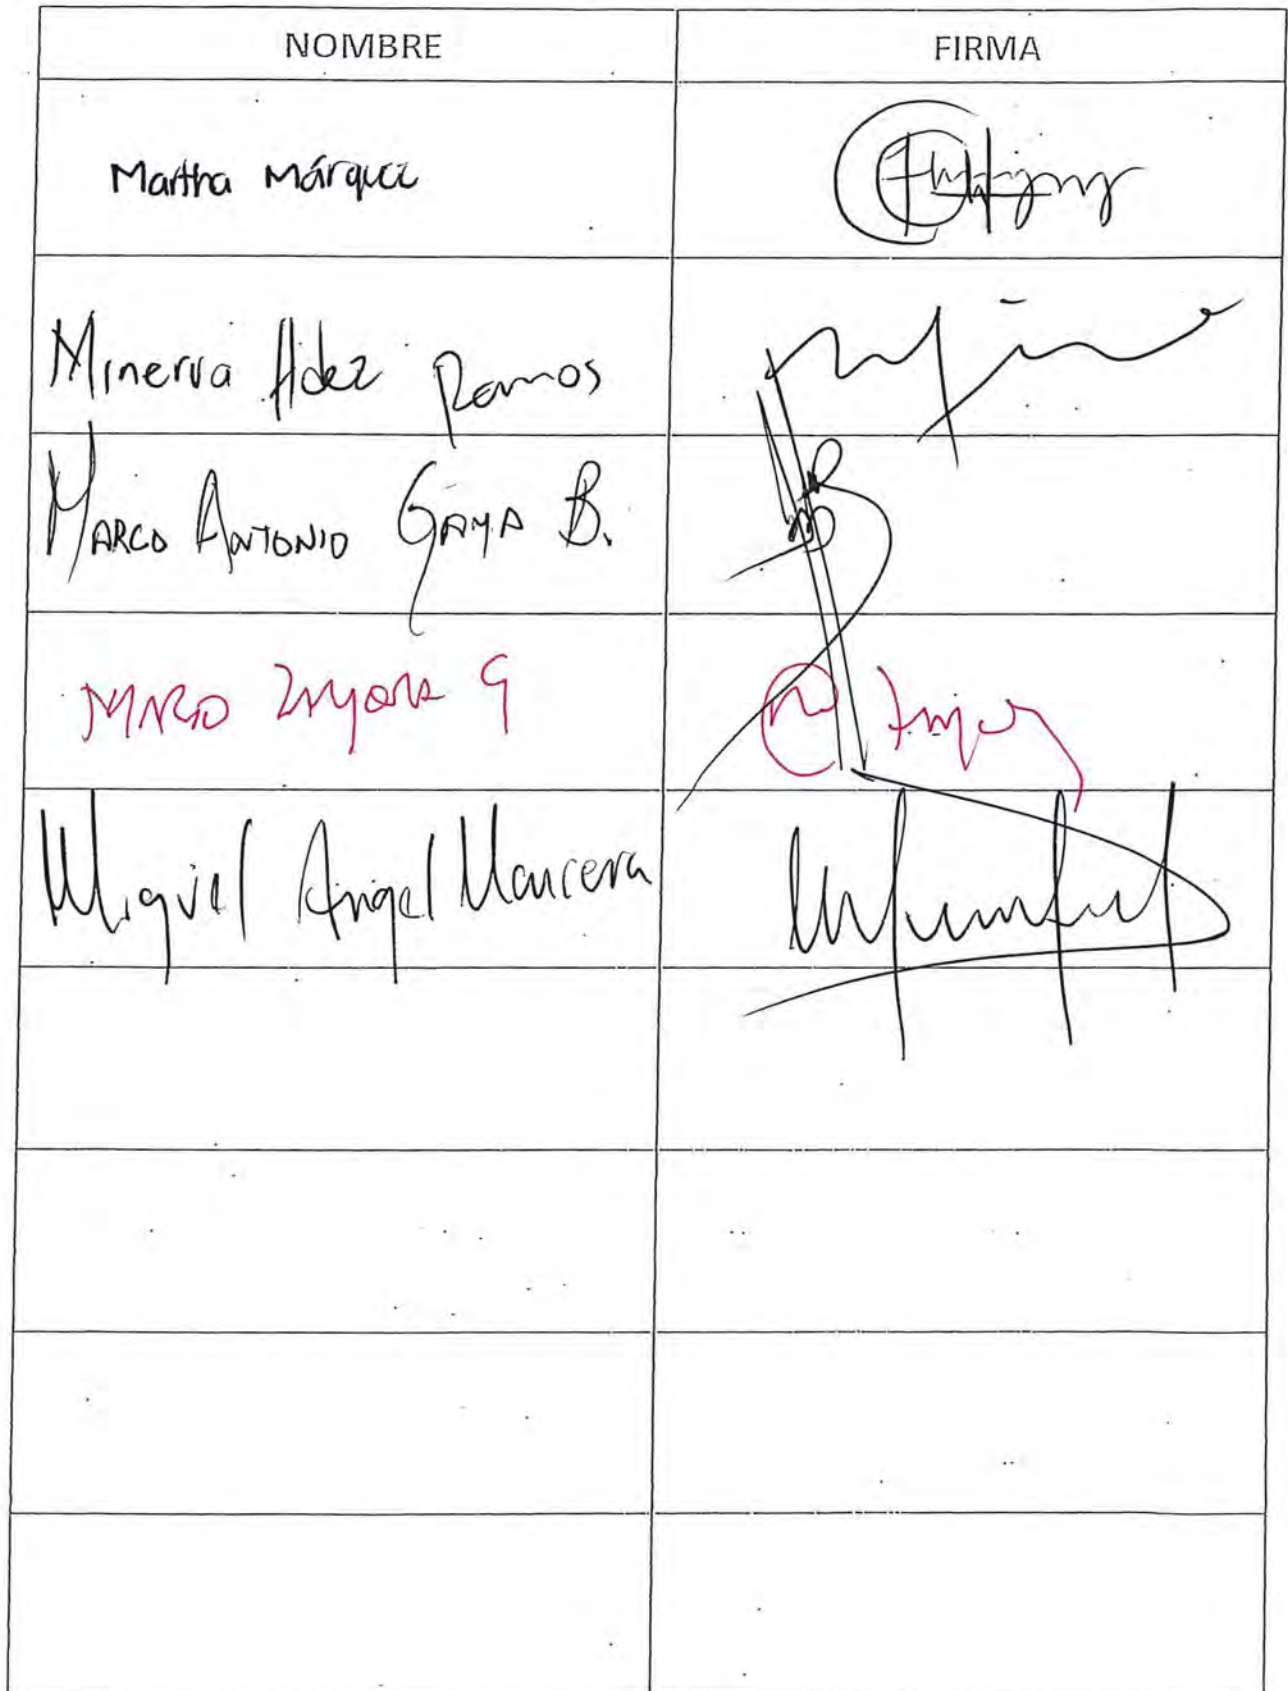 NOMBRE FIRMA
Martha Márquez
Minerva Hdez Ramos
MARCO ANTONIO GAMA B.
MARIO ZAMORA G
Miguel Angel Mancera